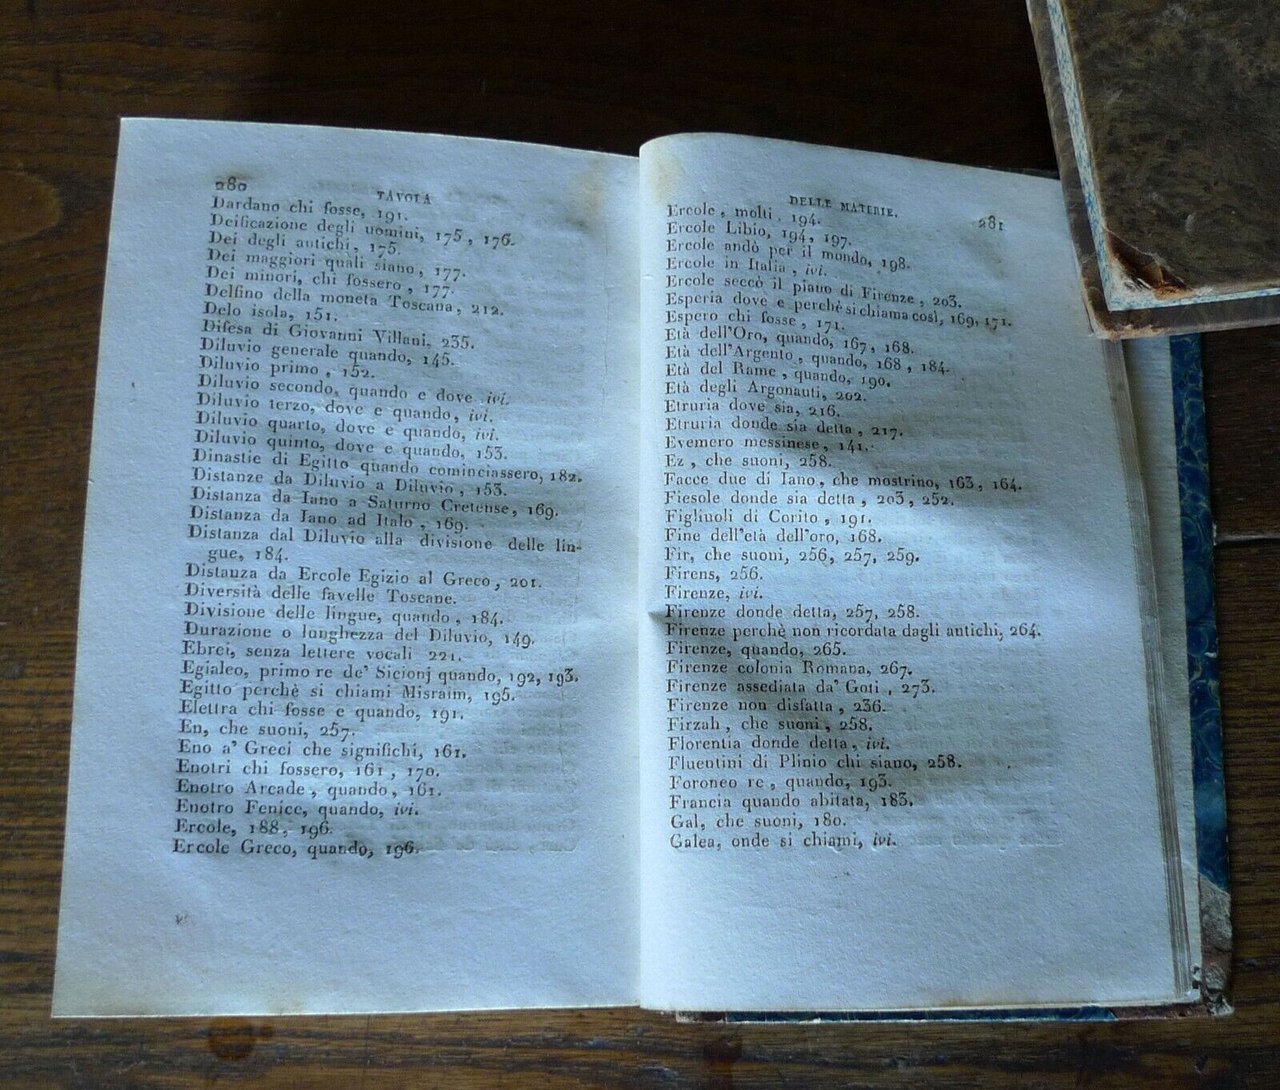 280
TAVOLA
Dardano chi fosse, 191.
Deificazione degli uomini, 175, 176.
Dei degli antichi, 175.
Dei maggiori quali siano, 177.
Dei minori, chi fossero, 177.
Delfino della moneta Toscana, 212.
Delo isola, 151.
Difesa di Giovanni Villani, 235.
Diluvio generale quando, 145.
Diluvio primo, 152.
Diluvio secondo, quando e dove ivi.
Diluvio terzo, dove e quando, ivi.
Diluvio quarto, dove e quando, ivi.
Diluvio quinto, dove e quando, 153.
Dinastie di Egitto quando cominciassero, 182.
Distanze da Diluvio a Diluvio, 153.
Distanza da Iano a Saturno Cretense, 169.
Distanza da Iano ad Italo, 169.
Distanza dal Diluvio alla divisione delle lin-
gue, 184.
Distanza da Ercole Egizio al Greco, 201.
Diversità delle favelle Toscane.
Divisione delle lingue, quando, 184.
Durazione o lunghezza del Diluvio, 149.
Ebrei, senza lettere vocali 221.
Egialeo, primo re de' Sicionj quando, 192, 193.
Egitto perchè si chiami Misraim, 195.
Elettra chi fosse e quando, 191.
En, che suoni, 257.
Eno a' Greci che significhi, 161.
Enotri chi fossero, 161, 170.
Enotro Arcade, quando, 161.
Enotro Fenice, quando, ivi.
Ercole, 188, 196.
Ercole Greco, quando, 196.
DELLE MATERIE.
281
Ercole, molti, 194.
Ercole Libio, 194, 197.
Ercole andò per il mondo, 198.
Ercole in Italia, ivi.
Ercole seccò il piano di Firenze, 203.
Esperia dove e perchè si chiama così, 169, 171.
Espero chi fosse, 171.
Età dell'Oro, quando, 167, 168.
Età dell'Argento, quando, 168, 184.
Età del Rame, quando, 190.
Età degli Argonauti, 202.
Etruria dove sia, 216.
Etruria donde sia detta, 217.
Evemero messinese, 141.
Ez, che suoni, 258.
Facce due di Iano, che mostrino, 163, 164.
Fiesole donde sia detta, 203, 252.
Figliuoli di Corito, 191.
Fine dell'età dell'oro, 168.
Fir, che suoni, 256, 257, 259.
Firens, 256.
Firenze, ivi.
Firenze donde detta, 257, 258.
Firenze perchè non ricordata dagli antichi, 264.
Firenze, quando, 265.
Firenze colonia Romana, 267.
Firenze assediata da' Goti, 273.
Firenze non disfatta, 236.
Firzah, che suoni, 258.
Florentia donde detta, ivi.
Fluentini di Plinio chi siano, 258.
Foroneo re, quando, 193.
Francia quando abitata, 183.
Gal, che suoni, 180.
Galea, onde si chiami, ivi.